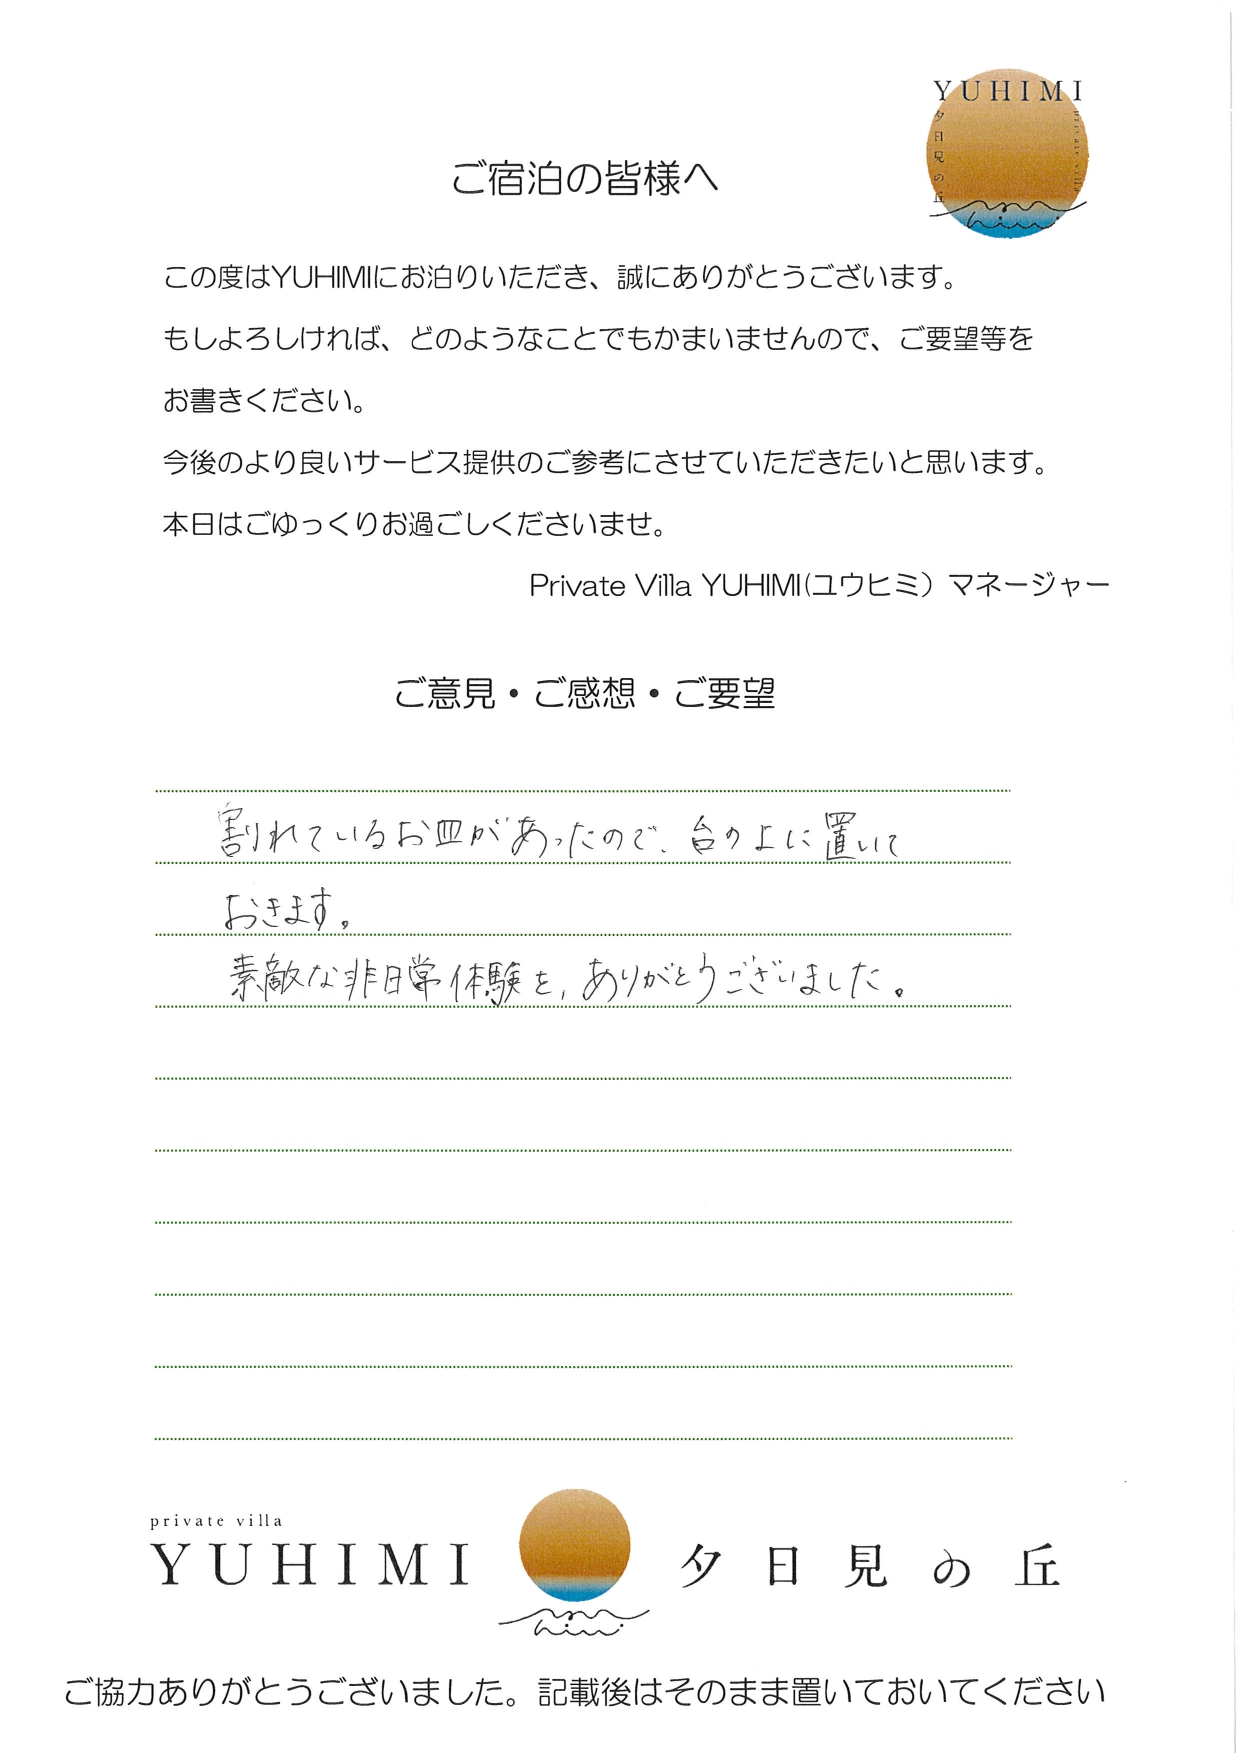 YUHIMI
夕日見の丘
private villa
ご宿泊の皆様へ
この度はYUHIMIにお泊りいただき、誠にありがとうございます。
もしよろしければ、どのようなことでもかまいませんので、ご要望等を
お書きください。
今後のより良いサービス提供のご参考にさせていただきたいと思います。
本日はごゆっくりお過ごしくださいませ。
Private Villa YUHIMI(ユウヒミ）マネージャー
ご意見・ご感想・ご要望
割れているお皿があったので、台の上に置いて
おきます。
素敵な非日常体験を、ありがとうございました。
private villa
YUHIMI 夕日見の丘
ご協力ありがとうございました。記載後はそのまま置いておいてください